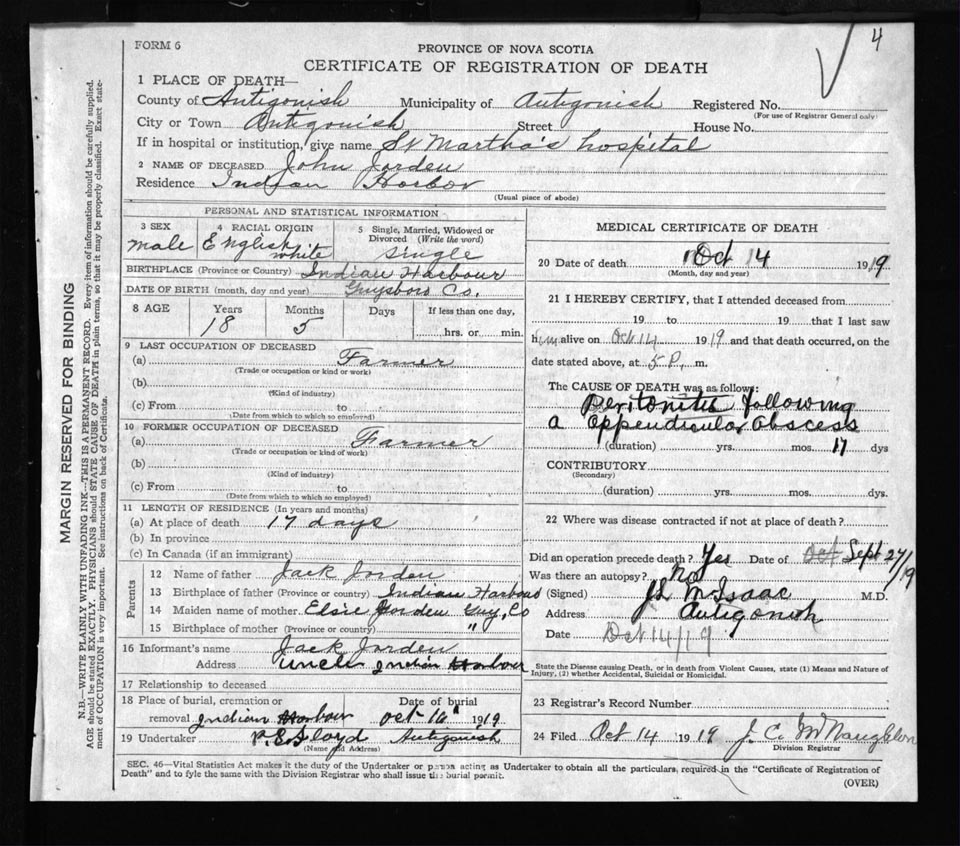 4
FORM 6
PROVINCE OF NOVA SCOTIA
CERTIFICATE OF REGISTRATION OF DEATH
1 PLACE OF DEATH—
County of Antigonish Municipality of Antigonish Registered No.
(For use of Registrar General only)
City or Town Antigonish Street House No.
If in hospital or institution, give name St Martha's hospital
2 NAME OF DECEASED John Jorden
Residence Indian Harbor
(Usual place of abode)
PERSONAL AND STATISTICAL INFORMATION
3 SEX male
4 RACIAL ORIGIN English white
5 Single, Married, Widowed or Divorced (Write the word) single
BIRTHPLACE (Province or Country) Indian Harbour
DATE OF BIRTH (month, day and year) Guysboro Co.
8 AGE Years 18 Months 5 Days If less than one day, hrs. or min.
9 LAST OCCUPATION OF DECEASED
(a) Farmer
(Trade or occupation or kind or work)
(b)
(Kind of industry)
(c) From to
(Date from which to which so employed)
10 FORMER OCCUPATION OF DECEASED
(a) Farmer
(Trade or occupation or kind of work)
(b)
(Kind of industry)
(c) From to
(Date from which to which so employed)
11 LENGTH OF RESIDENCE (In years and months)
(a) At place of death 17 days
(b) In province
(c) In Canada (if an immigrant)
Parents
12 Name of father Jack Jorden
13 Birthplace of father (Province or country) Indian Harbour
14 Maiden name of mother Jorden Guy. Co
15 Birthplace of mother (Province or country) "
16 Informant's name Jack Jorden
Address uncle Indian Harbour
17 Relationship to deceased
18 Place of burial, cremation or Date of burial
removal Indian Harbour Oct 16 1919
19 Undertaker Antigonish
(Name and Address)
MEDICAL CERTIFICATE OF DEATH
20 Date of death Oct 14 1919
(Month, day and year)
21 I HEREBY CERTIFY, that I attended deceased from
19 to 19 that I last saw
him alive on Oct 14 1919 and that death occurred, on the
date stated above, at 5 P. m.
The CAUSE OF DEATH was as follows:
Peritonitis following
a appendicular abscess
(duration) yrs. mos. 17 dys
CONTRIBUTORY
(Secondary)
(duration) yrs. mos. dys.
22 Where was disease contracted if not at place of death?
Did an operation precede death? Yes Date of Oct Sept 27/19
Was there an autopsy? No
(Signed) McIsaac M.D.
Address Antigonish
Date Oct 14/19
State the Disease causing Death, or in death from Violent Causes, state (1) Means and Nature of
Injury, (2) whether Accidental, Suicidal or Homicidal.
23 Registrar's Record Number
24 Filed Oct 14 1919 J. C. McNaughton
Division Registrar
SEC. 46—Vital Statistics Act makes it the duty of the Undertaker or person acting as Undertaker to obtain all the particulars required in the "Certificate of Registration of
Death" and to fyle the same with the Division Registrar who shall issue the burial permit.
(OVER)
MARGIN RESERVED FOR BINDING
N.B.—WRITE PLAINLY WITH UNFADING INK—THIS IS A PERMANENT RECORD. Every item of information should be carefully supplied.
AGE should be stated EXACTLY. PHYSICIANS should STATE CAUSE OF DEATH in plain terms, so that it may be properly classified. Exact state-
ment of OCCUPATION is very important. See instructions on back of Certificate.